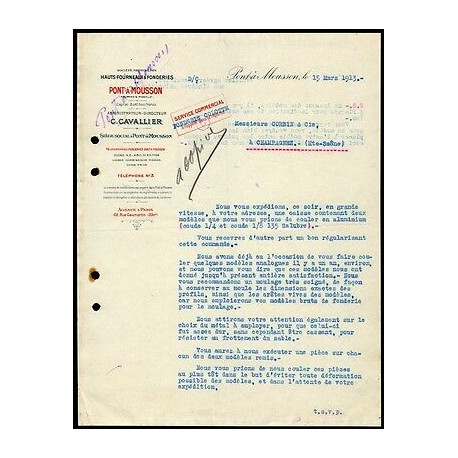 HAUTS-FOURNEAUX & FONDERIES
PONT-A-MOUSSON
ADMINISTRATEUR-DIRECTEUR
C. CAVALLIER
SIÈGE SOCIAL à PONT-à-MOUSSON
TÉLÉPHONE Nº 3
AGENCE A PARIS
2/C
Pont-à-Mousson, le 15 Mars 1913.-
SERVICE COMMERCIAL
Messieurs CORBIN & Cie,
à CHAMPAGNEY.- (Hte-Saône)
a copier
Nous vous expédions, ce soir, en grande
vitesse, à votre adresse, une caisse contenant deux
modèles que nous vous prions de couler en aluminium
(coude 1/4 et coude 1/8 135 Salubre).
Vous recevrez d'autre part un bon régularisant
cette commande.
Nous avons déjà eu l'occasion de vous faire cou-
ler quelques modèles analogues il y a un an, environ,
et nous pouvons vous dire que ces modèles nous ont
donné jusqu'à présent entière satisfaction.- Nous
vous recommandons un moulage très soigné, de façon
à conserver au moule les dimensions exactes des
profils, ainsi que les arêtes vives des modèles,
car nous emploierons vos modèles bruts de fonderie
pour le moulage.
Nous attirons votre attention également sur le
choix du métal à employer, pour que celui-ci
fut assez dur, sans cependant être cassent, pour
résister au frottement du sable.
Vous aurez à nous exécuter une pièce sur cha-
cun des deux modèles remis.
Nous vous prions de nous couler ces pièces
au plus tôt dans le but d'éviter toute déformation
possible des modèles, et dans l'attente de votre
expédition,
t.s.v.p.